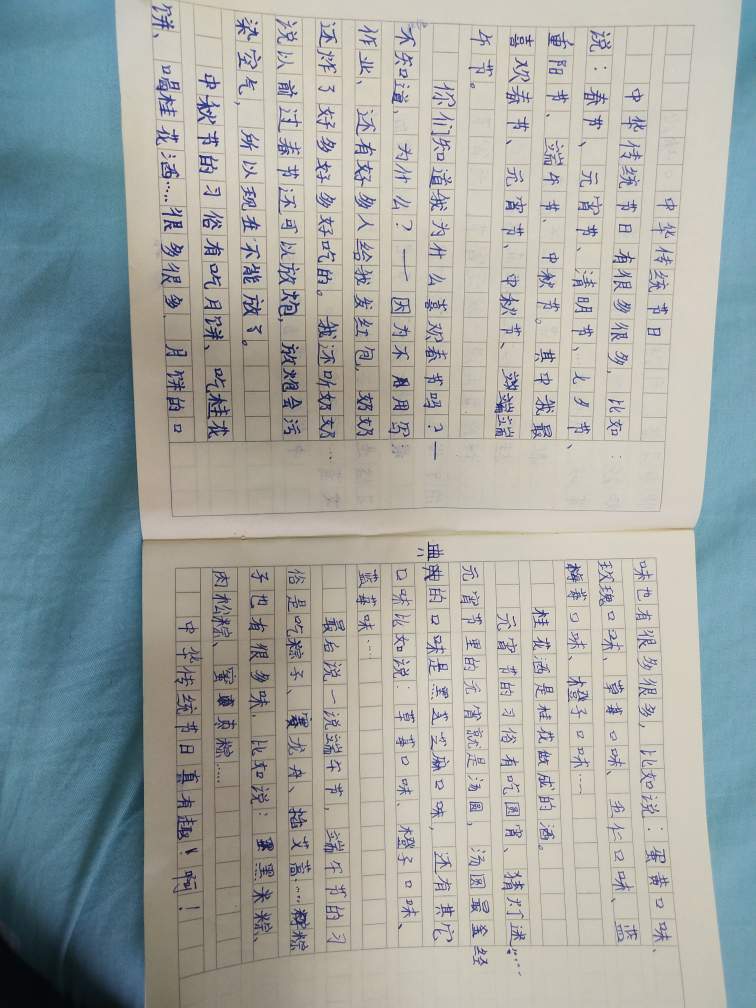 中华传统节日
中华传统节日有很多很多，比如：
说：春节、元宵节、清明节、七夕节、
重阳节、端午节、中秋节。其中我最
喜欢春节、元宵节、中秋节、端端
午节。
你们知道我为什么喜欢春节吗？一
不知道，为什么？——因为不用写
作业、还有好多人给我发红包，奶奶
还炸了好多好多好吃的。我还听奶奶
说以前过春节还可以放炮，放炮会污
染空气，所以现在不能放了。
中秋节的习俗有吃月饼、吃桂花
饼、喝桂花酒……很多很多，月饼的口
味也有很多很多，比如说：蛋黄口味、
玫瑰口味、草莓口味、五仁口味、蓝
莓口味、橙子口味……
桂花酒是桂花做成的酒。
元宵节的习俗有吃圆宵、猜灯迷……
元宵节里的元宵就是汤圆，汤圆最金经
典的口味是黑芝芝麻口味，还有其它
口味比如说：草莓口味、橙子口味、
蓝莓味……
最后说一说端午节，端午节的习
俗是吃粽子、赛龙舟、插艾蒿……粽
子也有很多味，比如说：黑米粽、
肉松粽、蜜枣粽……
中华传统节日真有趣！啊！